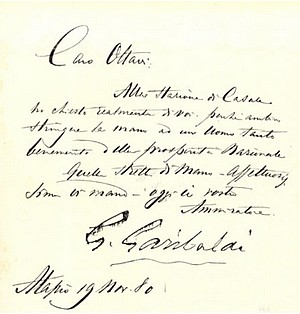 Caro Ottavi:
Alla stazione di Casale
ho chiesto realmente di voi. perché ambivo
stringere la mano ad un Uomo tanto
benemerito della prosperità Nazionale
Quella stretta di mano - affettuosis
sima vi mando - oggi il vostro
Ammiratore.
G. Garibaldi
19 Nov. 80